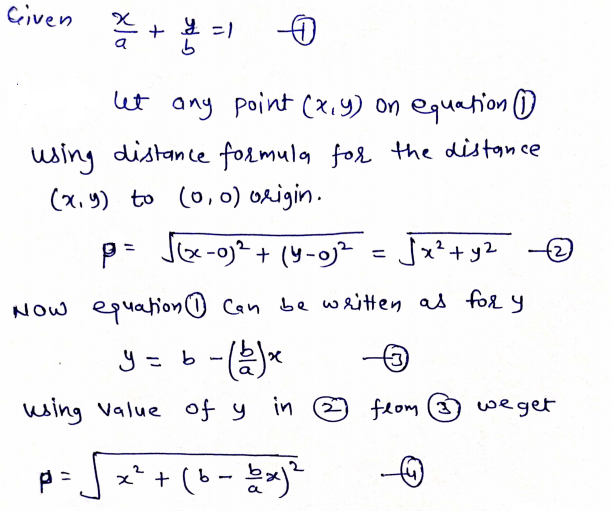 Given x/a + y/b = 1 —①
let any point (x,y) on equation ①
using distance formula for the distance
(x,y) to (0,0) origin.
p = √((x-0)² + (y-0)²) = √(x²+y²) —②
NOW equation ① can be written as for y
y = b - (b/a)x —③
using value of y in ② from ③ we get
p = √(x² + (b - b/a x)²) —④